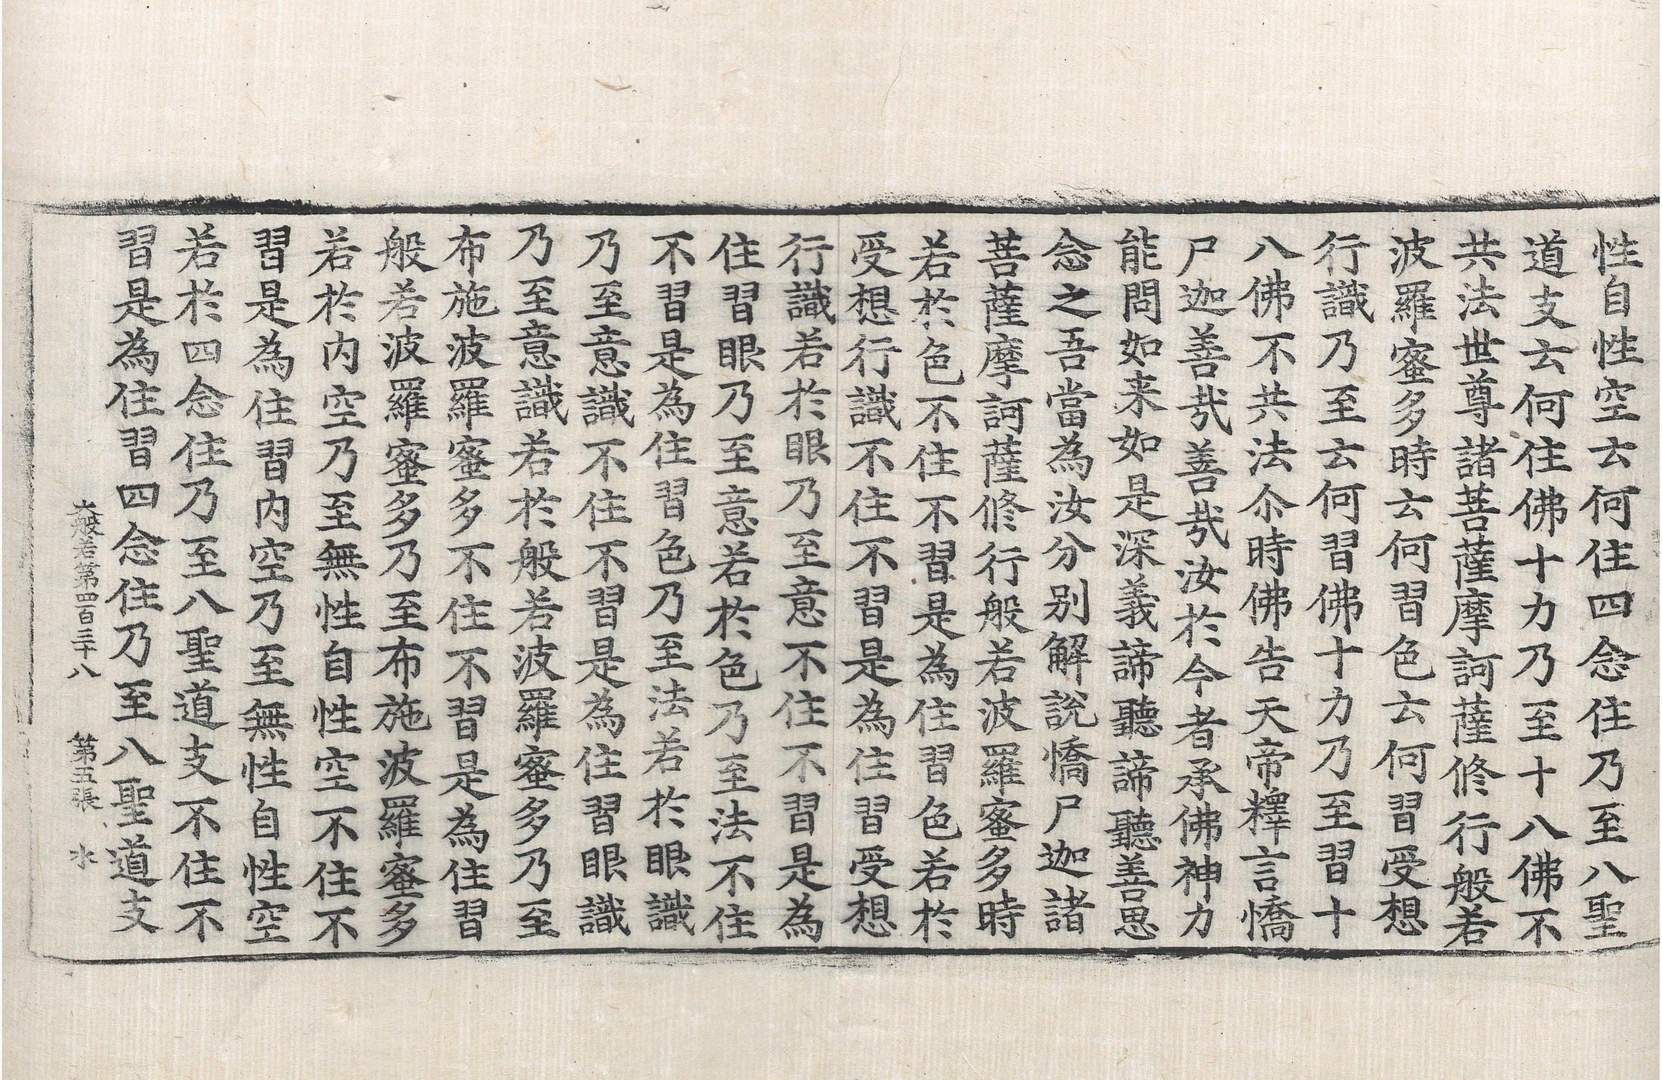 性自性空云何住四念住乃至八聖
道支云何住佛十力乃至十八佛不
共法世尊諸菩薩摩訶薩修行般若
波羅蜜多時云何習色云何習受想
行識乃至云何習佛十力乃至習十
八佛不共法尒時佛告天帝釋言憍
尸迦善哉善哉汝於今者承佛神力
能問如来如是深義諦聽諦聽善思
念之吾當為汝分别解說憍尸迦諸
菩薩摩訶薩修行般若波羅蜜多時
若於色不住不習是為住習色若於
受想行識不住不習是為住習受想
行識若於眼乃至意不住不習是為
住習眼乃至意若於色乃至法不住
不習是為住習色乃至法若於眼識
乃至意識不住不習是為住習眼識
乃至意識若於般若波羅蜜多乃至
布施波羅蜜多不住不習是為住習
般若波羅蜜多乃至布施波羅蜜多
若於内空乃至無性自性空不住不
習是為住習内空乃至無性自性空
若於四念住乃至八聖道支不住不
習是為住習四念住乃至八聖道支
大般若第四百二十八 第五張 水